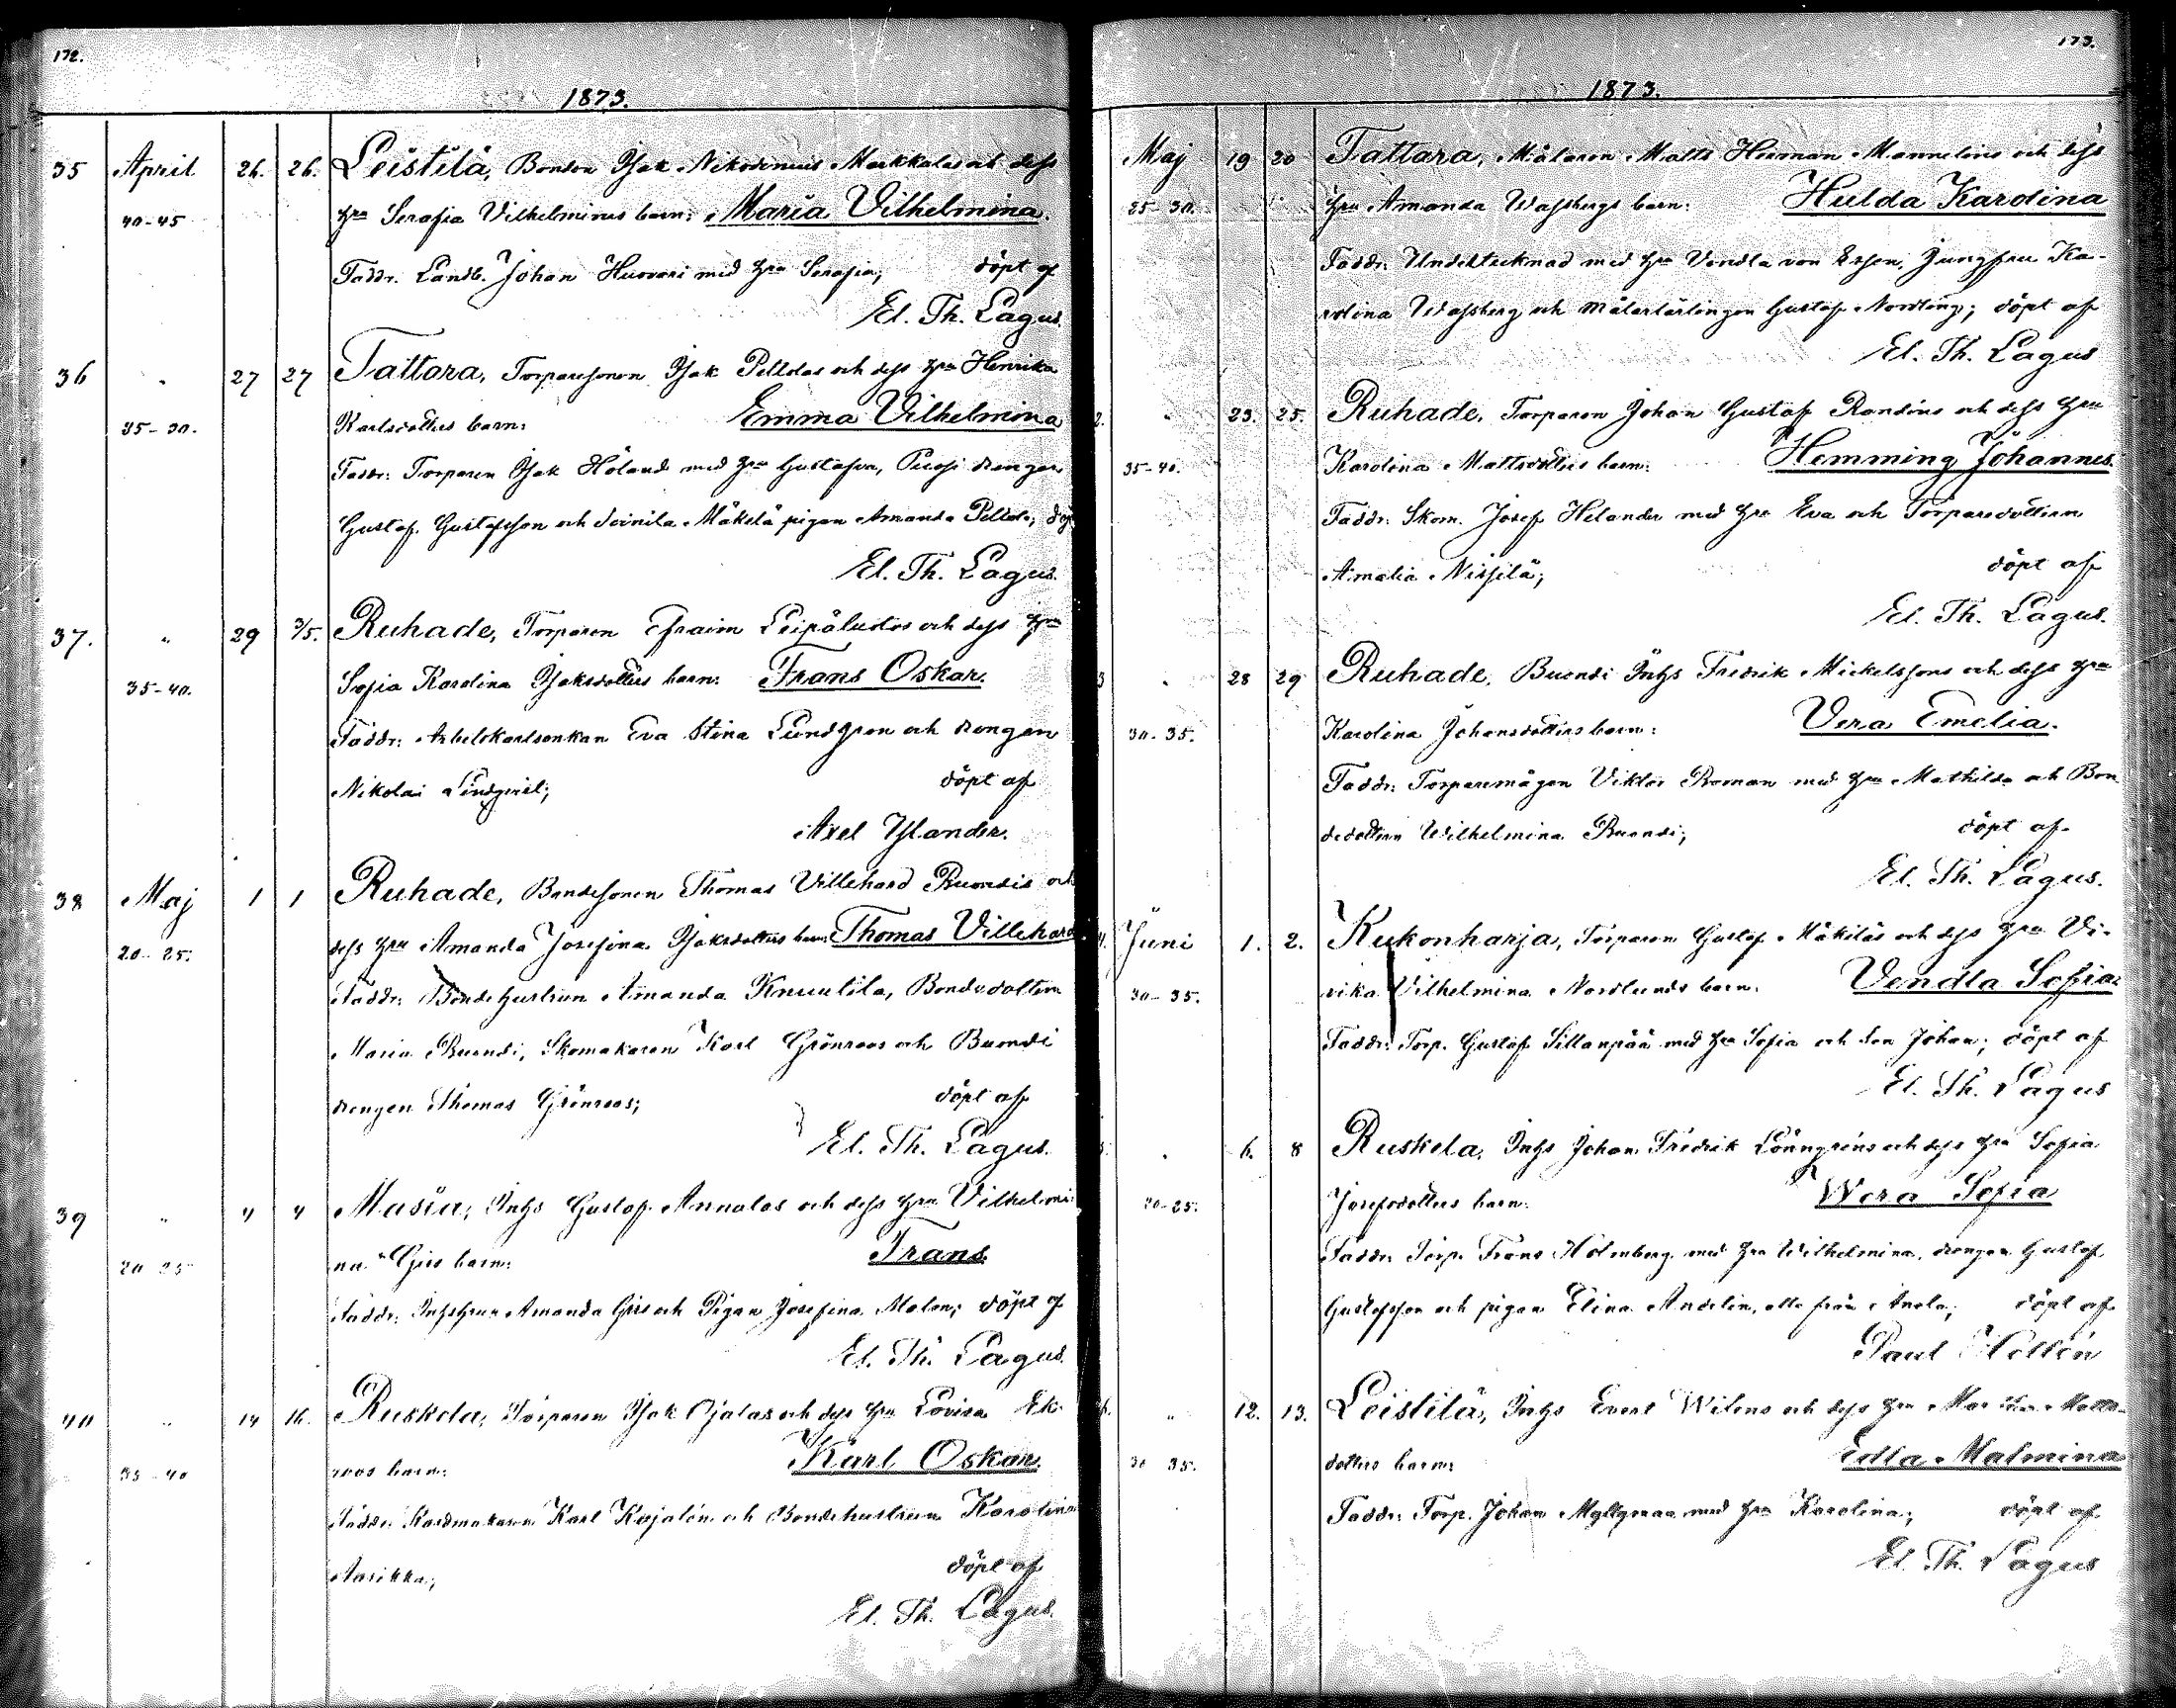 172.
1873.
35 April 26. 26. Leistilä, Bonden Isak Nikodemus Markkulas och dess
40-45 hru Serafia Vilhelminas barn: Maria Vilhelmina.
Faddr. Landb. Johan Huovari med hru Serafia; döpt af
El. Th. Lagus.
36 " 27 27 Tattara, Torparesonen Isak Pelldas och dess hru Henrika
25-30. Karlsdotters barn: Emma Vilhelmina
Faddr: Torparen Isak Höland med hru Gustafva, Puosi drengen
Gustaf Gustafsson och Soinila Mäkelä pigan Amanda ; döpt
El. Th. Lagus.
37. " 29 3/5. Ruhade, Torparen Efraim Leipäluotos och dess hru
35-40. Sofia Karolina Isaksdotters barn: Frans Oskar.
Faddr: Arbetskarlsenkan Eva Stina Lundgren och drengen
Nikolai Lindqvist; döpt af
Axel Yslander.
38 Maj 1 1 Ruhade, Bondesonen Thomas Villehard Buondis och
20-25. dess hru Amanda Josefina Isaksdotters barn: Thomas Villehard
Faddr: Bondehustrun Amanda Knuutila, Bondedottern
Maria Buondi, Skomakaren Karl Grönroos och Buondi
drengen Thomas Grönroos; döpt af
El. Th. Lagus.
39 " 4 4 Masia, Inhs Gustaf Annalas och dess hru Vilhelmi-
20-25 na Girs barn: Frans
Faddr: Inhshrun Amanda Girs och Pigan Josefina Malen; döpt af
El. Th. Lagus.
40 " 14 16. Ruskela, Torparen Isak Ojalas och dess hru Lovisa Ek-
35-40 roos barn: Karl Oskar.
Faddr: Kardmakaren Karl Kojalén och Bondehustrun Karolina
Aarikka; döpt af
El. Th. Lagus.
173.
1873.
Maj 19 20 Tattara, Målaren Matts Herman Mannelins och dess
25-30. hru Amanda Wassbergs barn: Hulda Karolina
Faddr: Undertecknad med hru Vendla von Essen, Jungfru Ka-
rolina Wassberg och målarlärlingen Gustaf Nordling; döpt af
El. Th. Lagus
2. " 23. 25. Ruhade, Torparen Johan Gustaf Randins och dess hru
35-40. Karolina Mattsdotters barn: Hemming Johannes.
Faddr: Skom. Josef Helander med hru Eva och Torparedottern
Amalia Nissilä; döpt af
El. Th. Lagus.
3 " 28 29 Ruhade, Buondi Inhs Fredrik Mickelssons och dess hru
30-35. Karolina Johansdotters barn: Vera Emelia.
Faddr: Torparemågen Viktor Roman med hru Mathilda och Bon-
dedottern Wilhelmina Buondi; döpt af
El. Th. Lagus.
4. Juni 1. 2. Kukonharja, Torparen Gustaf Mäkiläs och dess hru Vi-
30-35. vika Vilhelmina Nordlunds barn: Vendla Sofia.
Faddr: Torp. Gustaf Sillanpää med hru Sofia och son Johan; döpt af
El. Th. Lagus
5. " 6. 8 Ruskela, Inhs Johan Fredrik Lönngrens och dess hru Sofia
20-25. Josefsdotters barn: Wera Sofia
Faddr: Torp. Frans Holmberg med hru Wilhelmina, drengen Gustaf
Gustafsson och pigan Elina Andelin, alla från Anola; döpt af
Paul Hollén
6. " 12. 13. Leistilä, Inhs Evert Wilens och dess hru Matts-
30-35. dotters barn: Edla Malmina
Faddr: Torp. Johan Myllymaa med hru Karolina; döpt af
El. Th. Lagus